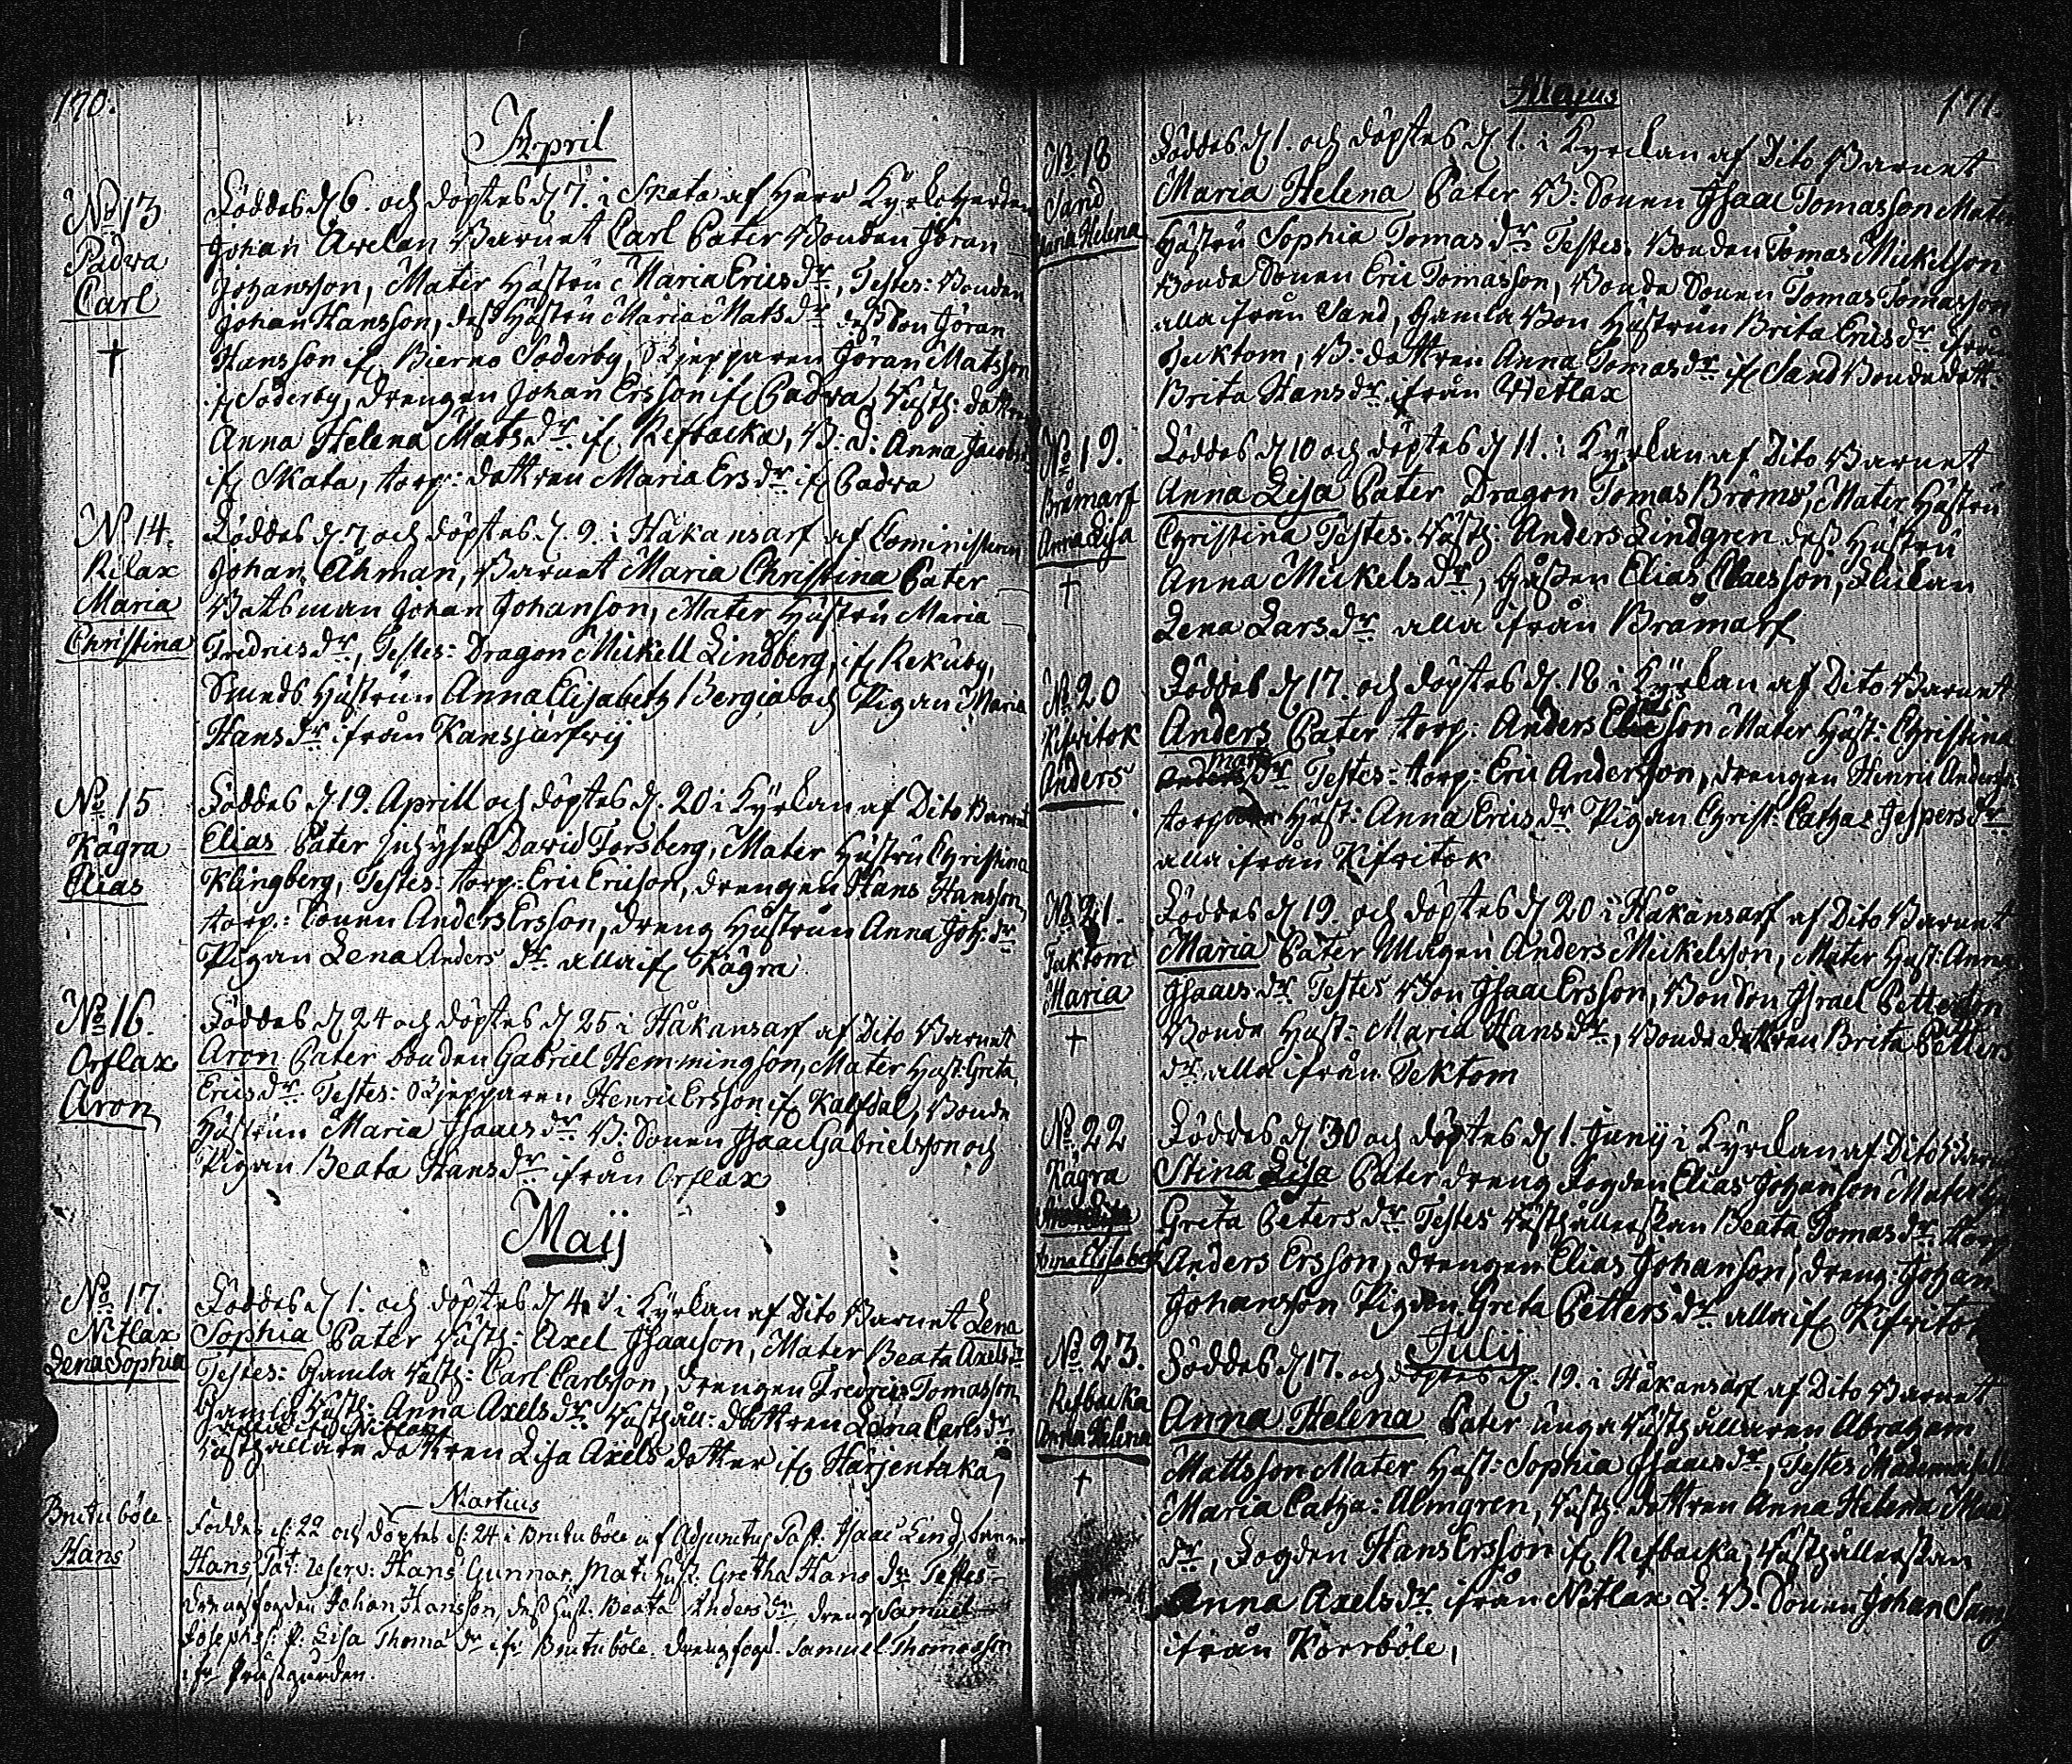 170.
April
No 13
Padva
Carl
Föddes d 6. och döptes d 7. i Skata af Herr Kyrkoherden
Johan Avelan Barnet Carl Pater Bonden Jöran
Johansson, Mater Hustru Maria Ericsdr, Testes: Bonden
Johan Hansson, dess Hustru Maria Matsdr dess Son Jöran
Hansson if Bierno Söderby, Skjepparen Jöran Matsson
if Söderby, drengen Johan Ersson if Padva, Rusth: dottren
Anna Helena Matsdr if Refbacka, B: d: Anna Jacobsdr
if Skata, torp: dottren Maria Ersdr if Padva
N 14.
Rilax
Maria
Christina
Föddes d 7 och döptes d. 9. i Håkansarf af Cominister
Johan Åhman, Barnet Maria Christina Pater
Båtsman Johan Johanson, Mater Hustru Maria
Fredricsdr, Testes: Dragon Mickell Lindberg, if Rekuby,
Smeds Hustrun Anna Elisabeth Bergia och Pigan Maria
Hansdr ifrån Kansjärfvy
No 15
Kägra
Elias
Föddes d. 19. Aprill och döptes d. 20 i Kyrkan af Dito Barnet
Elias Pater David Forsberg, Mater Hustru Christina
Klingberg, Testes: torp: Eric Ericson, drengen Hans Hansson
torp: Sonen Anders Ersson, dreng Hustrun Anna Joh:dr
Pigan Lena Andersdr alla if Kägra
No 16.
Orslax
Aron
Föddes d 24 och döptes d 25 i Håkansarf af Dito Barnet
Aron Pater bonden Gabriel Hemmingson, Mater Hust: Greta
Ericsdr Testes: Skjepparen Henric Ersson if Kalfdal, Bonde
Hustrun Maria Isaacsdr B: Sonen Isaac Gabrielsson och
Pigan Beata Hansdr ifrån Orslax
Maij
No 17.
Nitlax
Lena Sophia
Föddes d 1. och döptes d 4. i Kyrkan af Dito Barnet Lena
Sophia Pater Rusth: Axel Isaacson, Mater Beata Axelsdr
Testes: Gamla Rusth: Carl Carlsson, drengen Fredrics Tomasson
Gamla Rusth: Anna Axelsdr Rusthåll: dottren Lena Carlsdr
alla if Nitlax
Rusthållare dottren Lisa Axels dotter if Härjentaka
Martius
Brutuböle
Hans
Föddes d: 22 och döptes d: 24 i Brutuböle af Adjunctus Past: Isaac Lind, barnet
Hans Pat: reserv: Hans Gunnar, Mat: Hust: Gretha Hansdr Testes
drengfogden Johan Hansson, dess Hust: Beata Andersdr dreng Samuel
Josephs: P: Lisa Thomædr ifr Brutuböle. Drengfogd. Samuel Thomasson
ifr Prästgården.
Majus
171.
No 18
Sand
Maria Helena
Föddes d 1. och döptes d 1. i Kyrkan af Dito Barnet
Maria Helena Pater B: Sonen Isaac Tomasson Mater
Hustru Sophia Tomasdr Testes: Bonden Tomas Mickelson
Bonde Sonen Eric Tomasson, Bonde Sonen Tomas Tomasson
alla ifrån Sand, Gamla Bon Hustrun Brita Ericsdr ifrån
Tecktom, B: dottren Anna Tomasdr if Sand Bonde dott:
Brita Hansdr ifrån Wetlax
No 19.
Bråmarf
Anna Lisa
Föddes d 10 och döptes d 11. i Kyrkan af Dito Barnet
Anna Lisa Pater Dragon Tomas Broms, Mater Hustru
Christina Testes: Rusth: Anders Lindgren dess Hustru
Anna Mickelsdr, Elias Claesson, Enkan
Lena Larsdr alla ifrån Bråmarf
No 20
Kifvitok
Anders
Föddes d 17. och döptes d. 18 i Kyrkan af Dito Barnet
Anders Pater torp: Anders Ericson Mater Hust: Christina
Matsdr Testes: torp: Eric Anderson, drengen Henric Anderson
torp Hust: Anna Ericsdr Pigan Christ: Catha: Jespersdr
alla ifrån Kifvitok
No 21.
Tektom
Maria
Föddes d 19. och döptes d 20 i Håkansarf af Dito Barnet
Maria Pater Mågen Anders Mickelsson, Mater Hust: Anna
Isaacsdr Testes Bon Isaac Ersson, Bon Son Israel Petterson
Bonde Hust: Maria Hansdr, Bonde dottren Brita Petters
dr alla ifrån Tektom
No 22
Kägra
Anna Elisabeth
Föddes d 30 och döptes d 1. Junij i Kyrkan af Dito Barnet
Stina Lisa Pater dreng Fogden Elias Johanson Mater
Greta Petersdr Testes Rusthållerskan Beata Tomasdr torp
Anders Ersson, drengen Elias Johanson, dreng Johan
Johansson Pigan Greta Pettersdr alla if Kifvitok
Julij
No 23.
Refbacka
Anna Helena
Föddes d 17. och döptes d. 19. i Håkansarf af Dito Barnet
Anna Helena Pater unga Rusthållaren Abraham
Mattsson Mater Hust: Sophia Isaacsdr, Testes Mademoiselle
Maria Catha: Almgren, Rusth: dottren Anna Helena Mats
dr, Fogden Hans Ersson if Refbacka, Rusthållerskan
Anna Axelsdr ifrån Nitlax L: B: Sonen Johan
ifrån Korrböle,